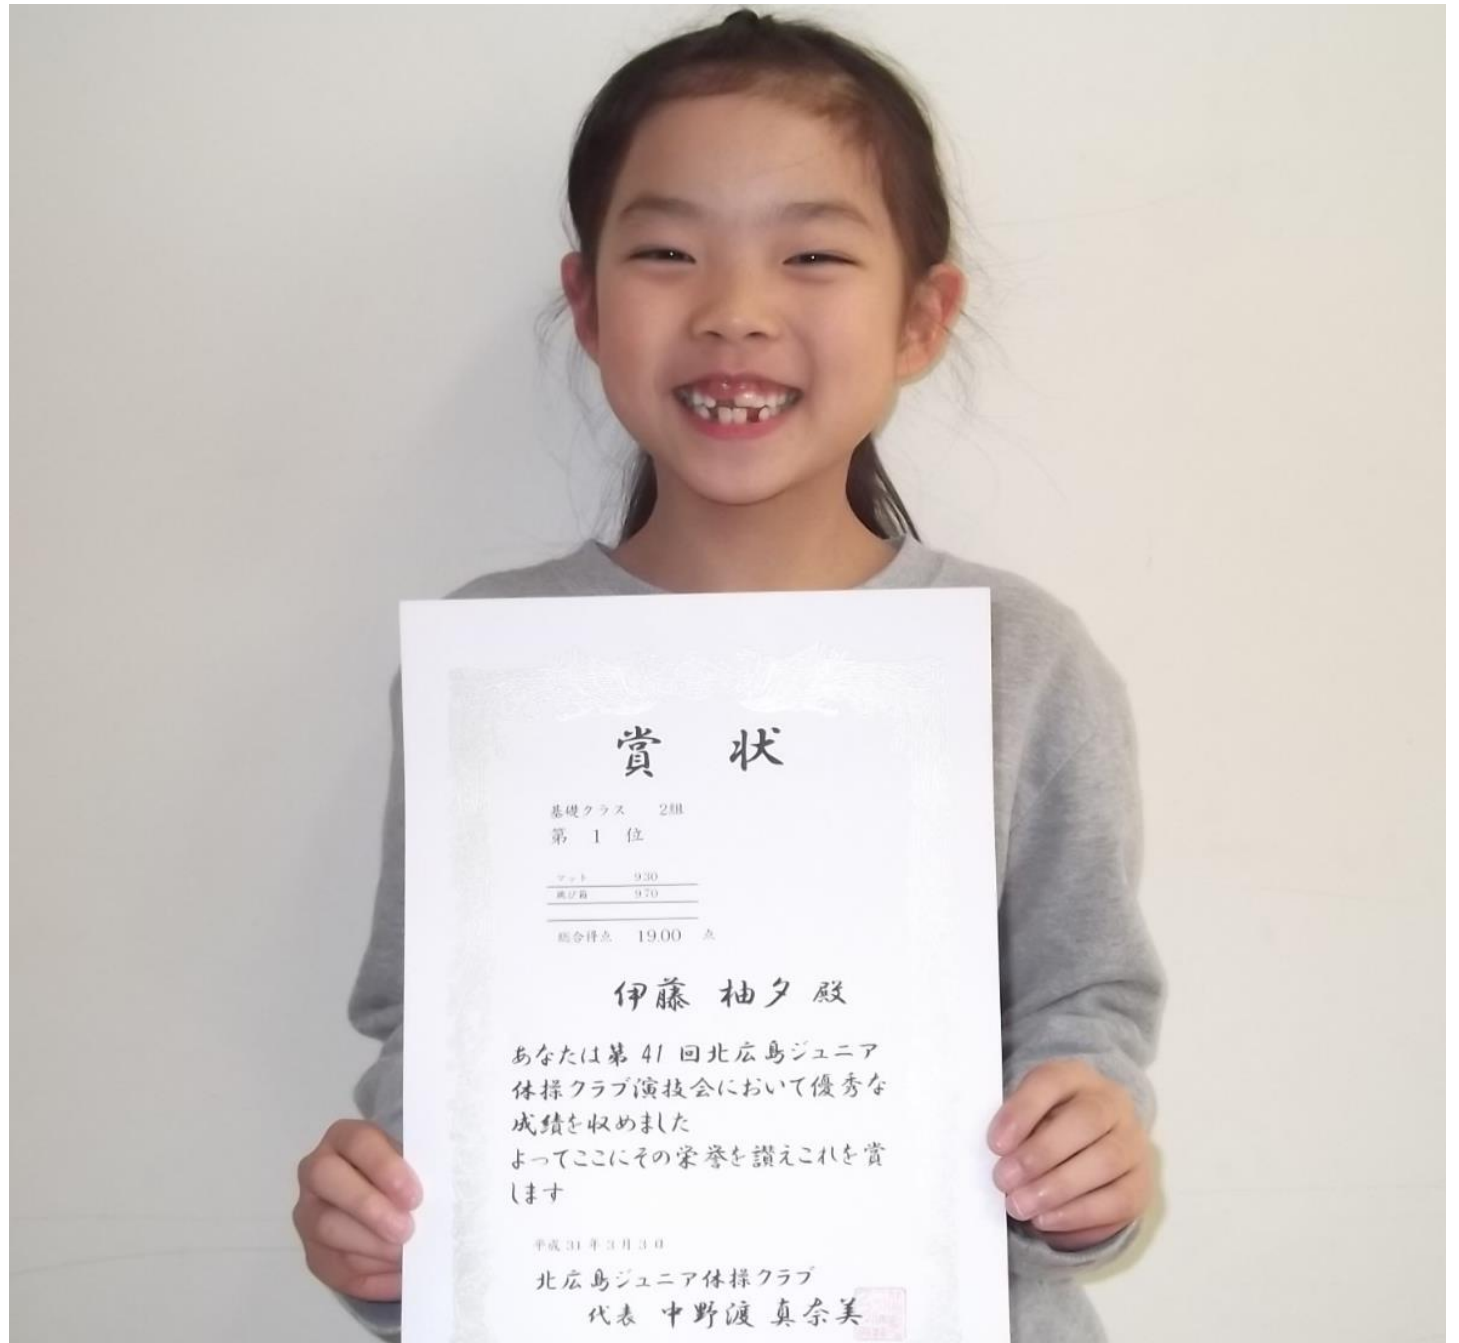 賞 状
基礎クラス 2組
第 1 位
マット 9.30
跳び箱 9.70
総合得点 19.00 点
伊藤 柚夕 殿
あなたは第 41 回北広島ジュニア
体操クラブ演技会において優秀な
成績を収めました
よってここにその栄誉を讃えこれを賞
します
平成 31 年 3 月 3 日
北広島ジュニア体操クラブ
代表 中野渡 真奈美